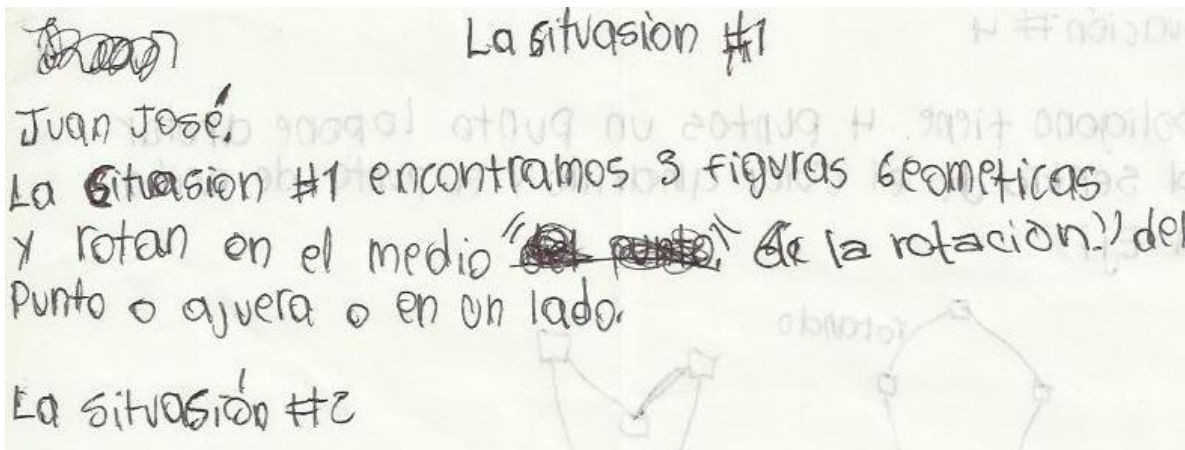 La situasion #1
Juan José.
La situasion #1 encontramos 3 figuras Geometicas
y rotan en el medio " de la rotación." del
Punto o ajuera o en un lado.
La situasión #2